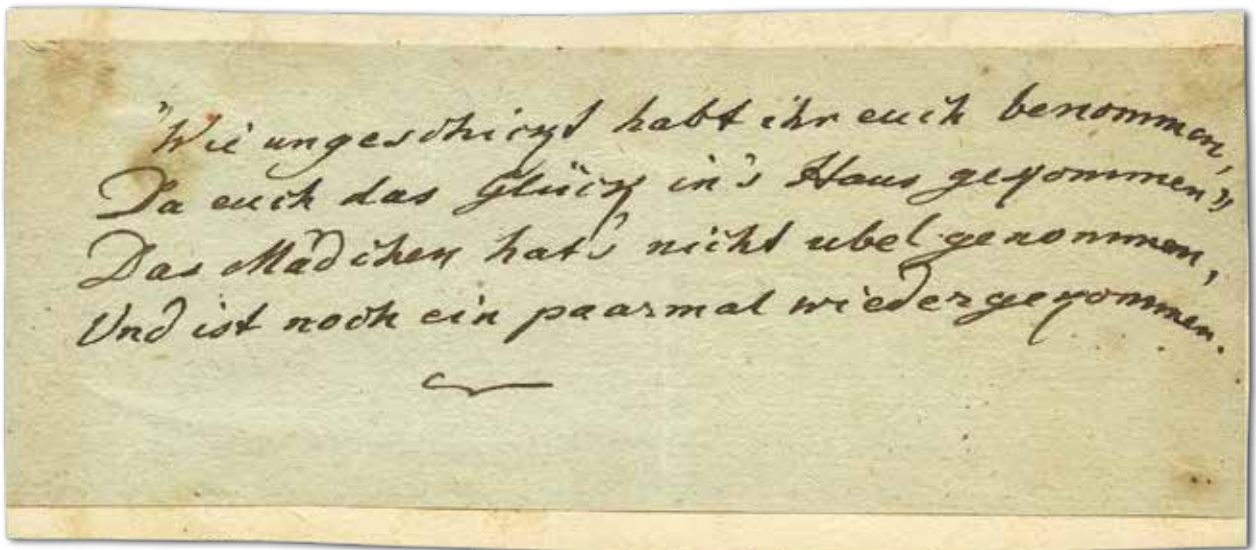 "Wie ungeschickt habt ihr euch benommen,
Da euch das Glück in's Haus gekommen"
Das Mädchen hat's nicht übel genommen,
Und ist noch ein paarmal wiedergekommen.